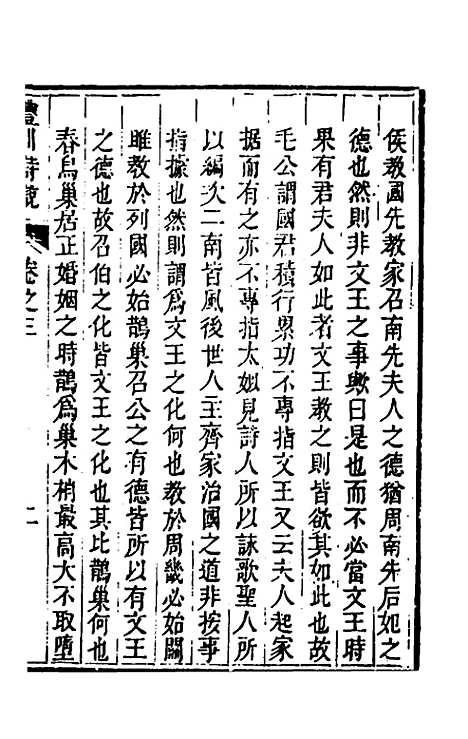 侯教國先教家召南先夫人之德猶周南先后妃之
德也然則非文王之事歟曰是也而不必當文王時
果有君夫人如此者文王教之則皆欲其如此也故
毛公謂國君積行累功不專指文王又云夫人起家
据而有之亦不專指太姒見詩人所以詠歌聖人所
以編次二南皆風後世人主齊家治國之道非按事
指據也然則謂爲文王之化何也教於周畿必始關
雎教於列國必始鵲巢召公之有德皆所以有文王
之德也故召伯之化皆文王之化也其比鵲巢何也
春鳥巢居正婚姻之時鵲爲巢木梢最高大不取墮
詩說 卷之三 二